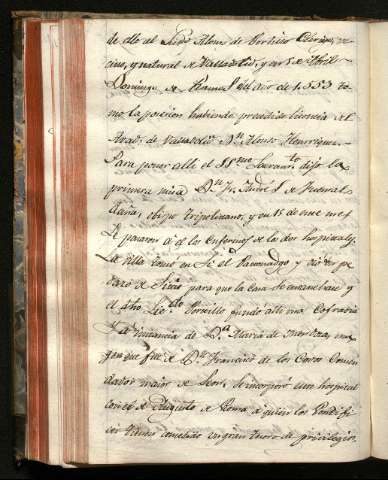 de ello al Licdo. Alonso de Portillo Clerigo, ve-
cino, y natural de Valladolid, y en 5 de Abril
Domingo de Ramos del año de 1.553 to-
mo la posesion habiendo precedido licencia del
Abad de Valladolid Dn. Alonso Henriquez.
Para poner alli el SSmo. Sacramto. dijo la
primera misa Dn. Fr. Andre
daña, obispo Tripolitano; y en 15 de este mes
se pasaron á él los Enfermos de los dos hospitales.
La Villa tomó en Si el Patronazgo y dió un pe-
dazo de Sitio para que la Casa se ensanchase y
el dho Licdo. Portillo fundó alli una Cofradia
y a instancia de Da. Maria de Mendoza, mu-
ger que fue de Dn. Francisco de los Cobos Comen-
dador maior de Leon, se incorporó este hospital
con el de Sti. Spiritu de Roma a quien los Pontifi-
ces tienen concedido un gran tesoro de privilegios.